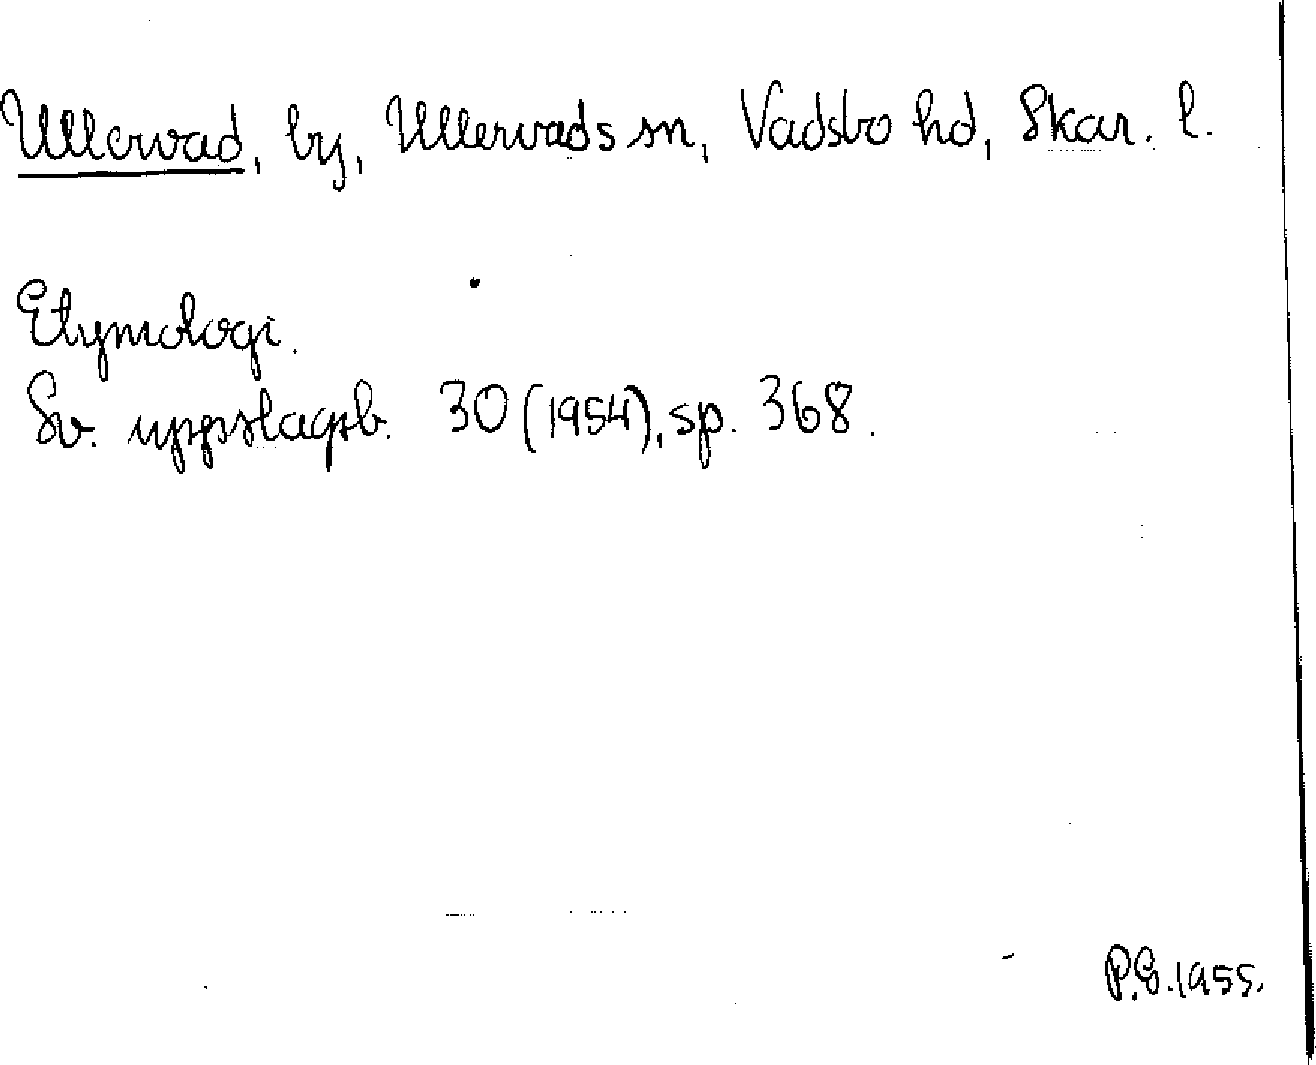 Ullervad, by, Ullervads sn, Vadsbo hd, Skar. l.
Etymologi.
Sv. uppslagsb. 30 (1954), sp. 368.
P.G. 1955.